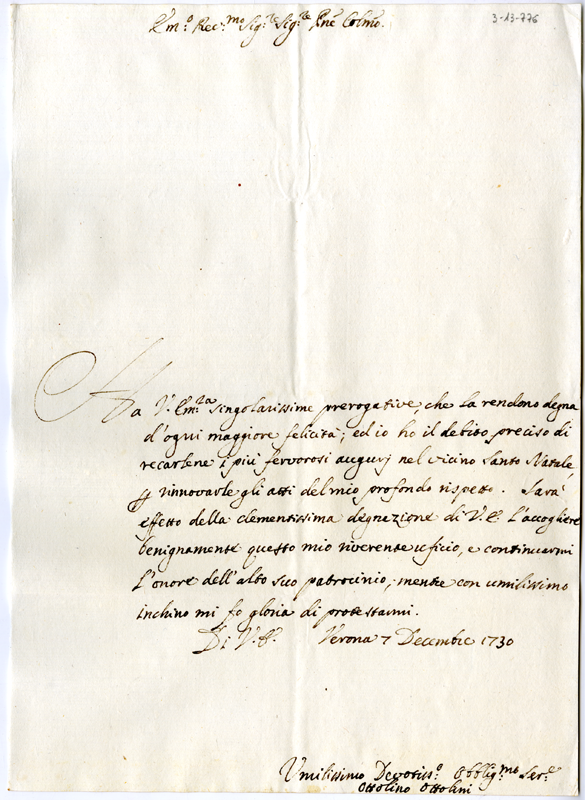 3-13-776
Em:º Rev:mo Sig:re Sig:re Pne Colmo.
Ha V. Em:za singolarissime prerogative, che la rendono degna
d'ogni maggiore felicità; ed io ho il debito preciso di
recarlene i più fervorosi augurj nel vicino Santo Natale,
p rinnovarle gli atti del mio profondo rispetto. Sarà
effetto della clementissima degnazione di V. E. l'accogliere
benignamente questo mio riverente uficio, e continuarmi
l'onore dell'alto suo patrocinio, mentre con umilissimo
inchino mi fo gloria di protestarmi.
Di V. E. Verona 7 Decembre 1730
Umilissimo Devotiss:º Obblig:mo Ser:e
Ottolino Ottolini